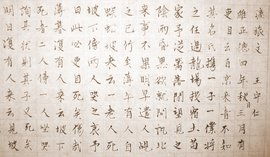 瘞旅文 王守仁
維正德四年秋三月有
吏目云自京來者不知
其名氏攜一子一僕將
之任過龍場投宿土苗
家予從籬落間望見之
陰雨昏黑欲就問訊北
來事不果明早遣人覘
之已行矣薄午有人自
蜈蚣坡來云一老人死
坡下傍兩人哭之哀予
曰此必吏目死矣傷哉
薄暮復有人來云坡下
死者二人傍一人坐哭
詢其狀則其子又死矣
明日復有人來云見坡